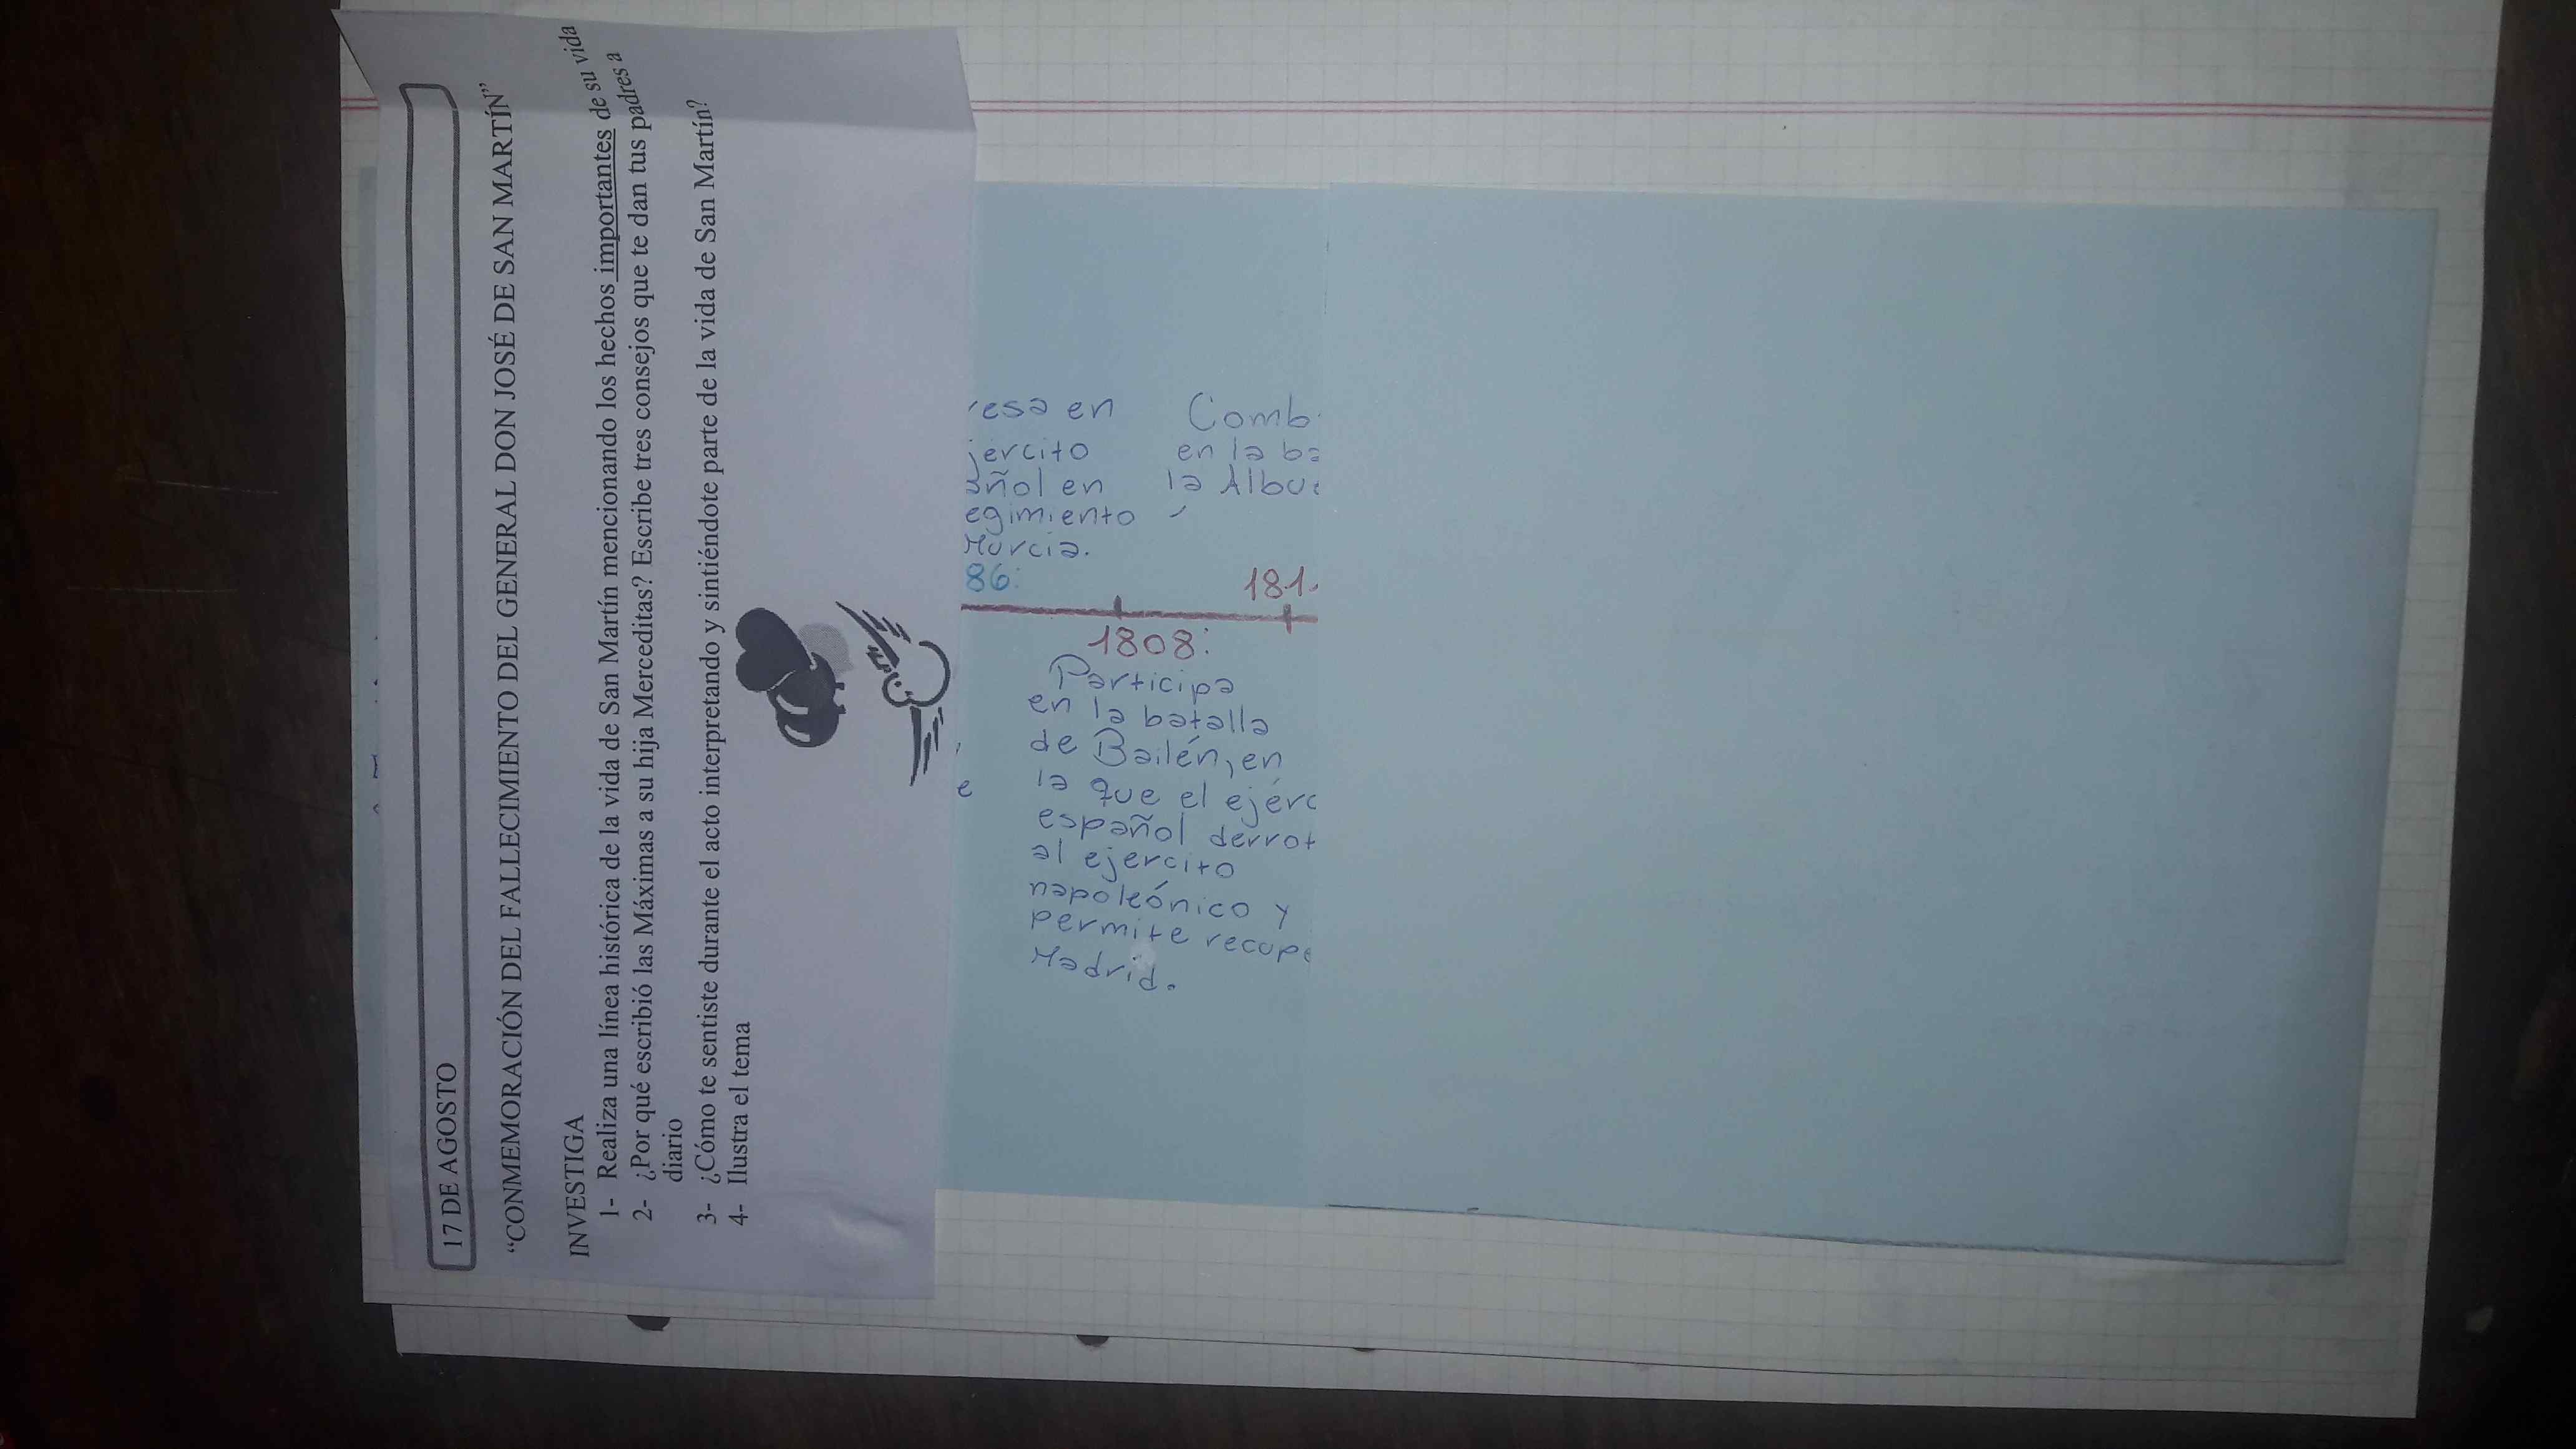 17 DE AGOSTO
“CONMEMORACIÓN DEL FALLECIMIENTO DEL GENERAL DON JOSÉ DE SAN MARTÍN”
INVESTIGA
1- Realiza una línea histórica de la vida de San Martín mencionando los hechos importantes de su vida
2- ¿Por qué escribió las Máximas a su hija Merceditas? Escribe tres consejos que te dan tus padres a
diario
3- ¿Cómo te sentiste durante el acto interpretando y sintiéndote parte de la vida de San Martín?
4- Ilustra el tema
esa en
jercito
añol en
egimiento
Murcia.
86:
Comb
en la ba
la Albue
181
1808:
Participa
en la batalla
de Bailén, en
la que el ejérc
español derrot
al ejercito
napoleónico y
permite recupe
Madrid.
e